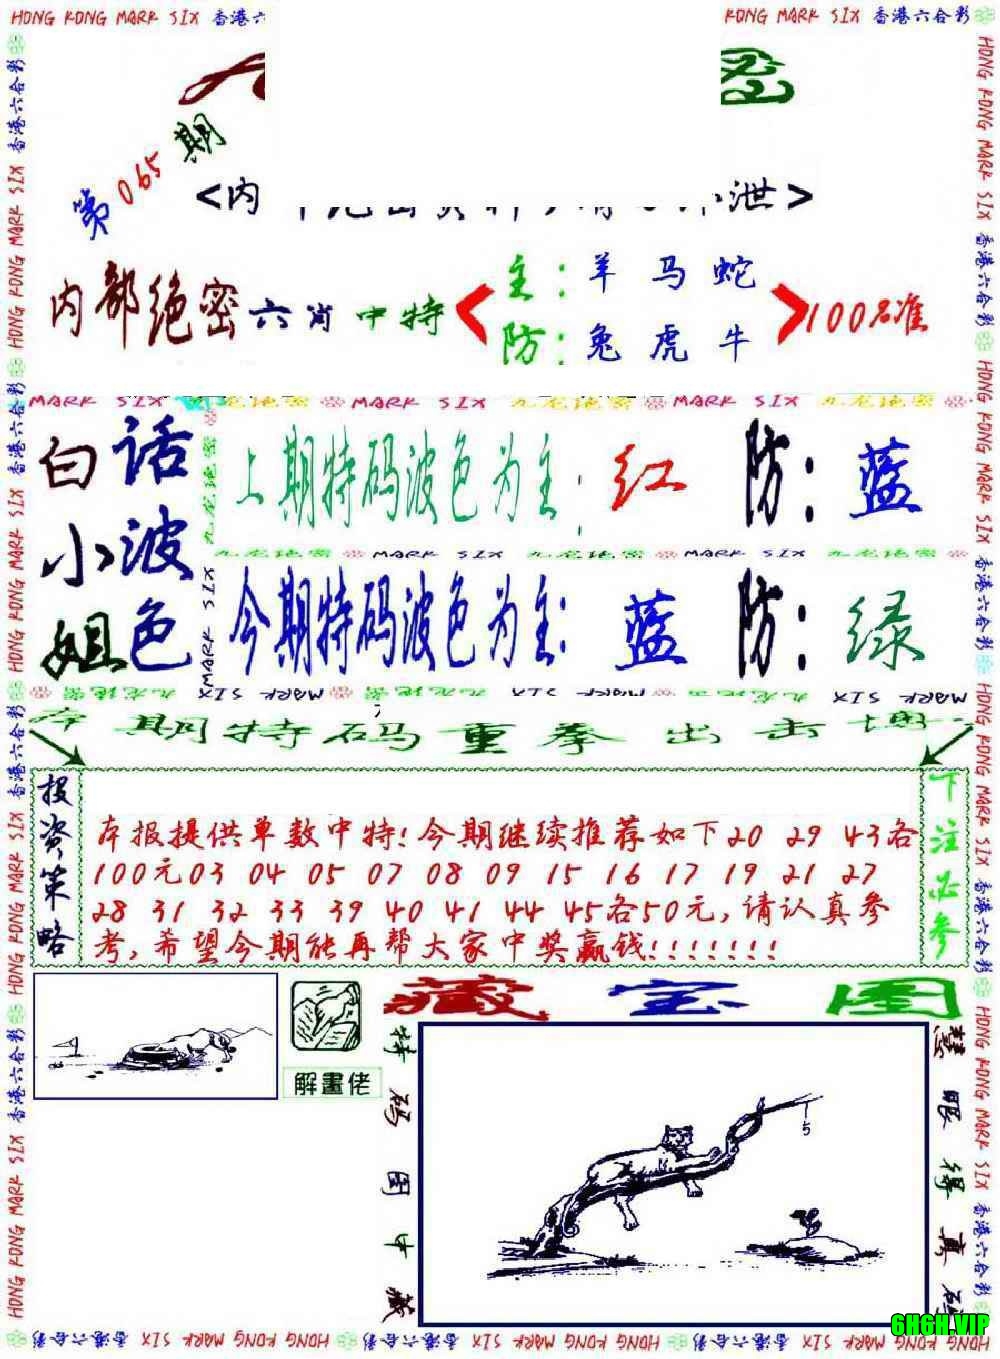 HONG KONG MARK SIX 香港六合彩
KONG MARK SIX 香港六合彩
密
第065期
<内
泄>
内部绝密六肖中特
主：羊 马 蛇
防：兔 虎 牛
100%准
MARK SIX 九龙绝密 MARK SIX 九龙绝密 MARK SIX 九龙绝密
白小姐
话波色
上期特码波色为主：红 防：蓝
九龙绝密 MARK SIX 九龙绝密 MARK SIX 九龙绝密
今期特码波色为主：蓝 防：绿
九龙绝密 MARK SIX 九龙绝密 MARK SIX 九龙绝密 MARK SIX
本期特码重拳出击
投资策略
本报提供单数中特!今期继续推荐如下20 29 43各
100元03 04 05 07 08 09 15 16 17 19 21 27
28 31 32 33 39 40 41 44 45各50元,请认真参
考,希望今期能再帮大家中奖赢钱!!!!!!!
下注必参
解畫佬
藏宝图
特码图中藏
5
慧眼得真
6HGH.VIP
HONG KONG MARK SIX 香港六合彩